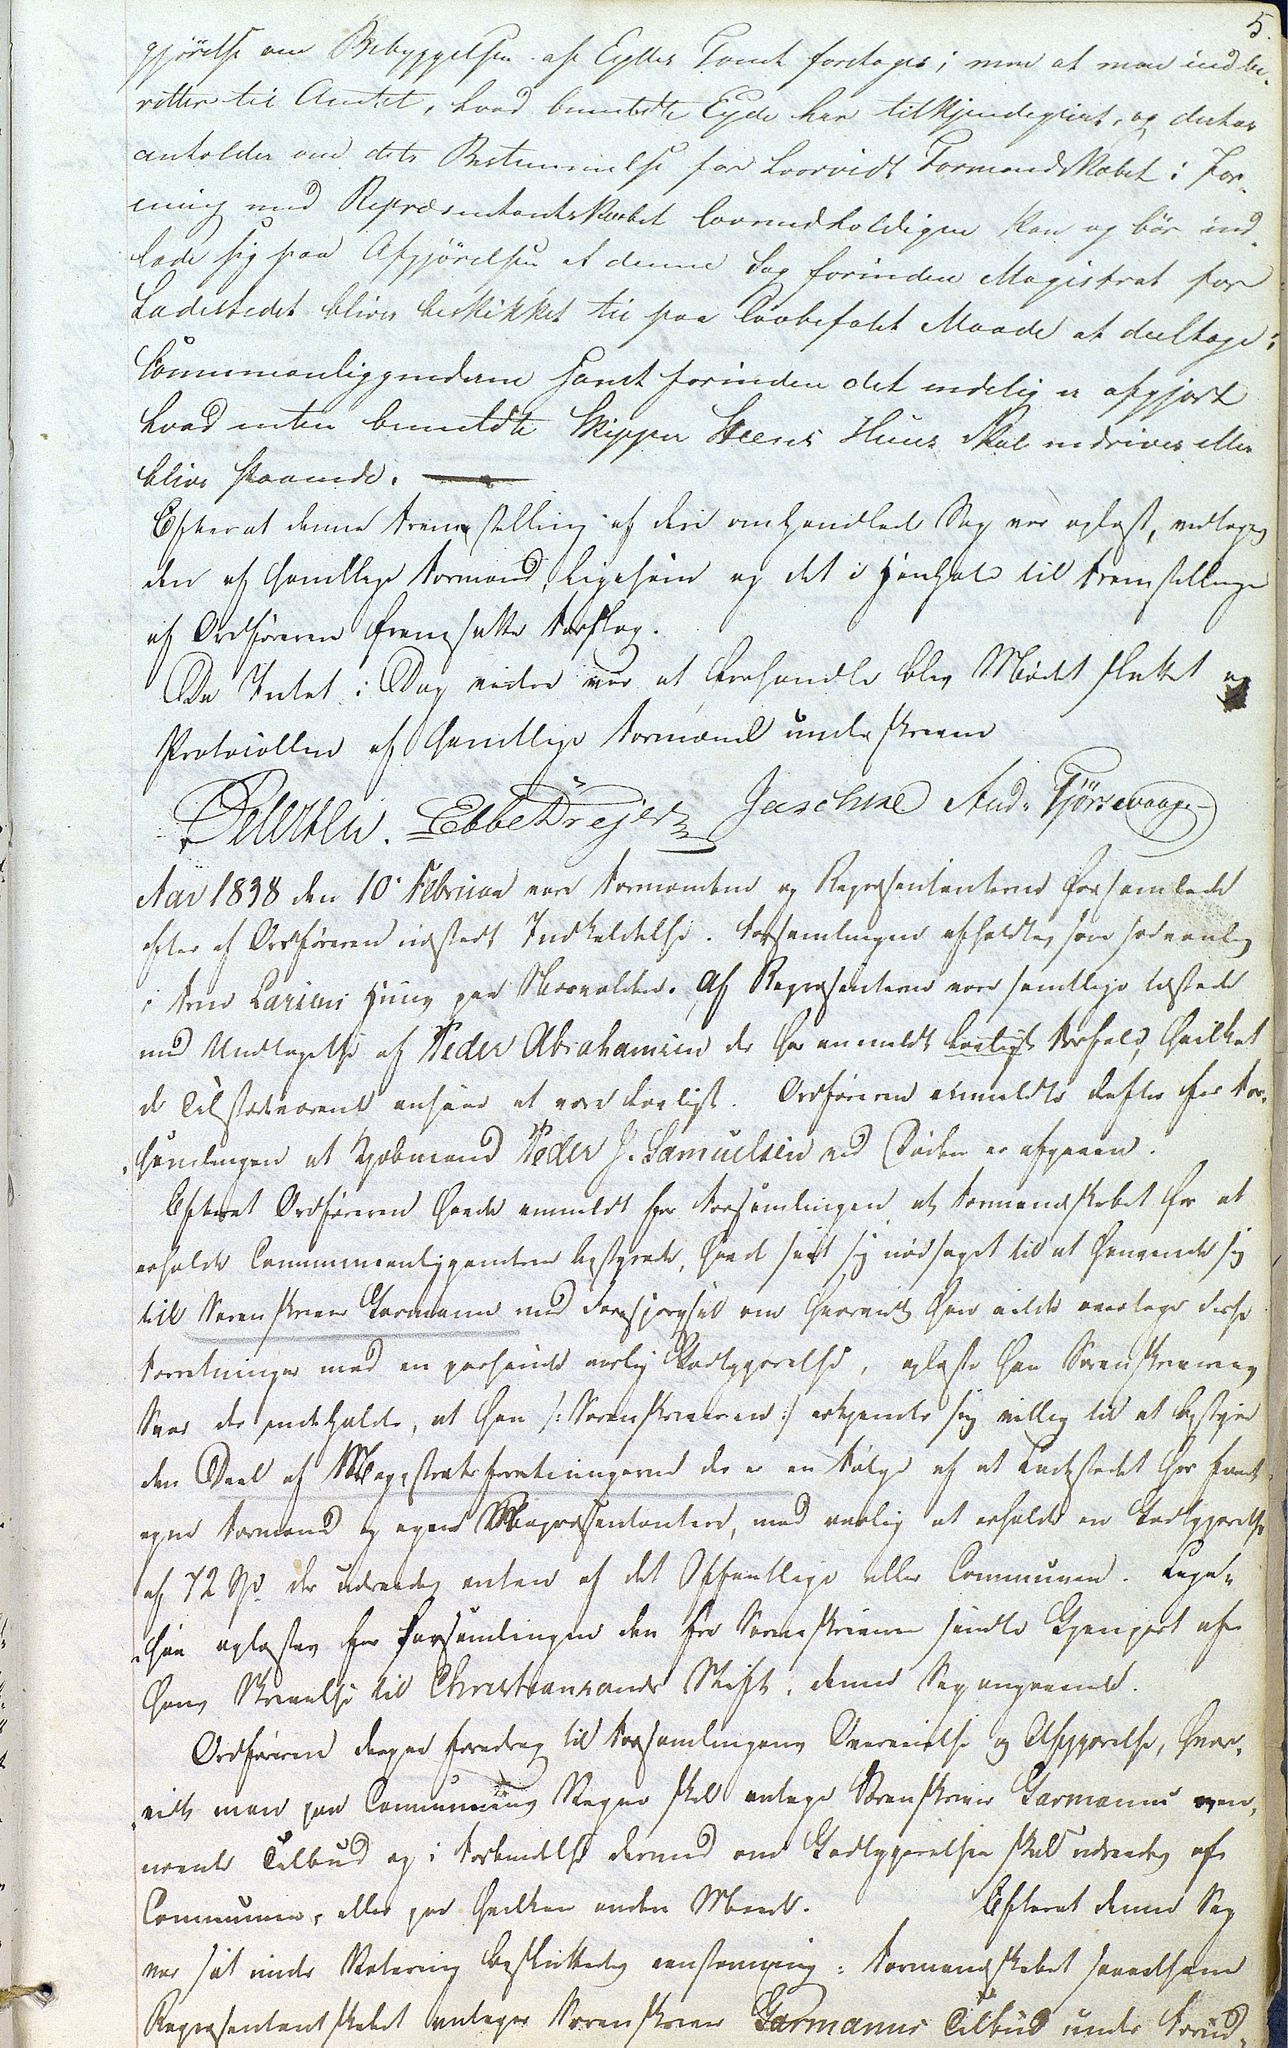 5.
gjørelse om Bebyggelsen af Eydes Tomt foretages; men at man indbe-
retter til Amtet, hvad bemeldte Eyde har tilkjendegivet, og derhos
anholder om dets Bestemmelse for hvorvidt Formandskabet i For-
ening med Repræsentantskabet lovmedholdigen kan og bør ind-
lade sig paa Afgjørelsen af denne Sag forinden Magistrat for
Ladestedet bliver beskikket til paa lovbefalet Maade at deeltage i
Communanliggenderne samt forinden det endelig er afgjort
hvad enten bemeldte Skipper Steens Huus skal nedrives eller
blive staaende.
Efterat denne Fremstilling af den omhandlede Sag var oplæst, vedtoges
den af samtlige Formænd, ligesom og det i Henhold til Fremstillingen
af Ordføreren fremsatte Forslag.
Da Intet i Dag videre var at forhandle blev Mødet sluttet og
Protocollen af samtlige Formænd underskreven
Petersen. Ebbe Drejer Jaschke And. Tjörsevaage
Aar 1838 den 10de Februar vare Formændene og Repræsentanterne forsamlede
efter af Ordføreren udstedt Indkaldelse. Forsamlingen afholdtes som sædvanlig
i Arne Larsens Huus paa Norvalden. Af Repræsentanterne vare samtlige tilstede
med Undtagelse af Peder Abrahamsen der har anmeldt lovligt Forfald, hvilket
de Tilstedeværende ansaae at være lovligt. Ordføreren anmeldte derefter for For-
samlingen at Kjøbmand Peder J. Samuelsen ved Døden er afgaaen.
Efterat Ordføreren havde anmeldt for Forsamlingen at Formandskabet for at
erholde Communeanliggenderne bestyrede, havde seet sig nødsaget til at henvende sig
til Sorenskriver Garmann med Forespørgsel om hvorvidt han vilde overtage disse
Forretninger mod en passende aarlig Godtgjørelse, oplæste han Sorenskriverens
Svar der indeholdt, at han /: Sorenskriveren :/ erkjendte sig villig til at bestyre
den Deel af Magistratsforretningerne der er en Følge af at Ladestedet har faaet
egne Formænd og egne Repræsentantere, mod aarlig at erholde en Godtgjørelse
af 72 Spd. der udredes enten af det Offentlige eller Communen. Lige-
saa oplæstes for Forsamlingen den fra Sorenskriveren sendte Gjenpart af
hans Skrivelse til Christiansands Stift, denne Sag angaaende.
Ordføreren derpaa foredrog til Forsamlingens Overveielse og Afgjørelse, hvor-
vidt man paa Communens Vegne skal antage Sorenskriver Garmanns oven-
nævnte Tilbud og i Forbindelse dermed om Godtgjørelsen skal udredes af
Communen, eller paa hvilken anden Maade. Efterat denne Sag
var sat under Votering besluttedes eenstemmig: Formandskabet saavelsom
Repræsentantskabet antager Sorenskriver Garmanns Tilbud under Forud-